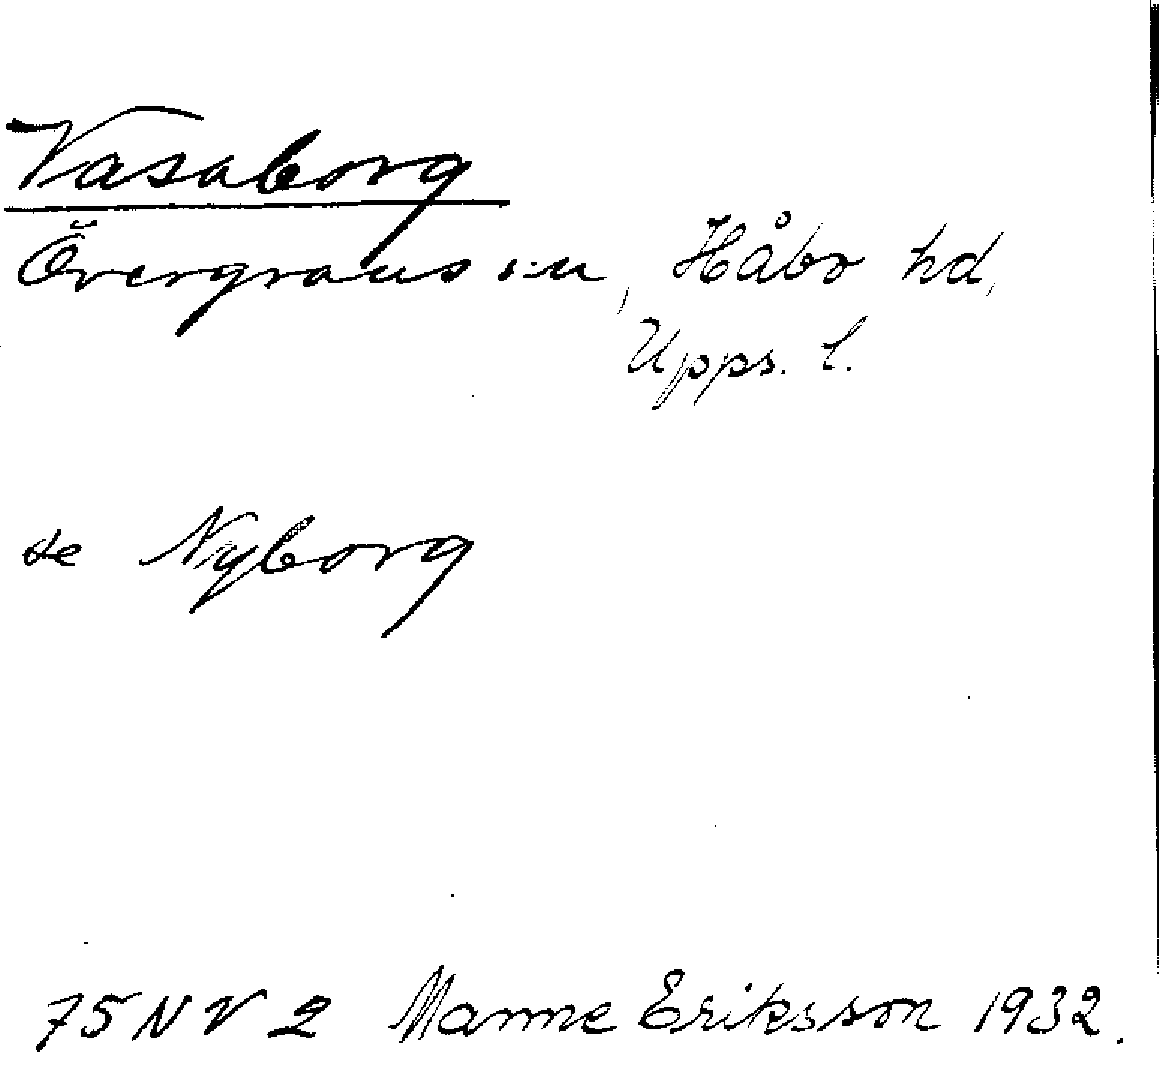 Vasaborg
Övergrans s:n, Håbo hd,
Upps. l.
se Nyborg
75 NV 2 Manne Eriksson 1932.